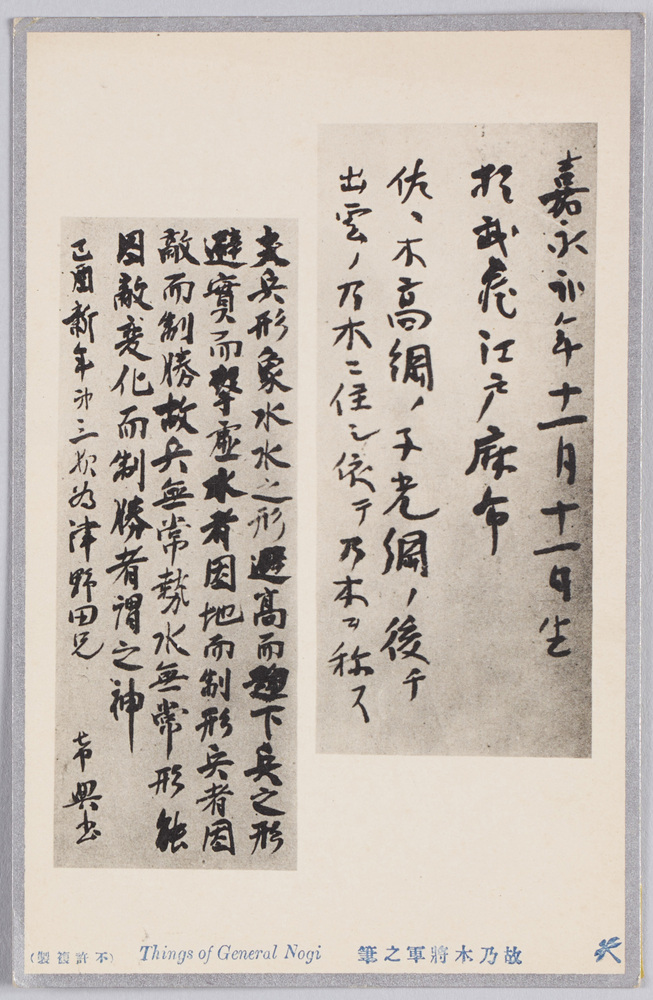 嘉永二年十一月十一日生
於武蔵江戸麻布
佐々木高綱ノ子光綱ノ後チ
出雲ノ乃木ニ住シ依テ乃木ヲ称ス
夫兵形象水水之形避高而趨下兵之形
避實而撃虚水者因地而制形兵者因
敵而制勝故兵無常勢水無常形能
因敵変化而制勝者謂之神
己酉新年 三 為津野田兄
希典書
故乃木將軍之筆
Things of General Nogi
(不許複製)